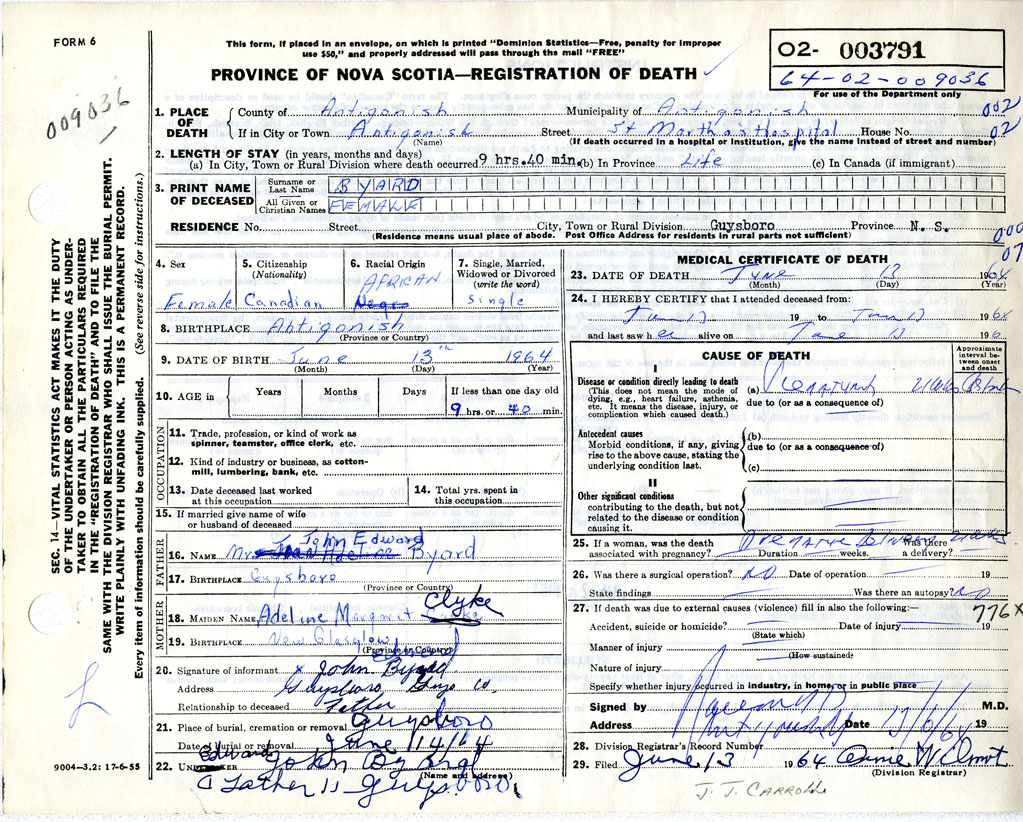 FORM 6
This form, if placed in an envelope, on which is printed "Dominion Statistics—Free, penalty for improper
use $50," and properly addressed will pass through the mail "FREE"
02- 003791
64-02-009036
For use of the Department only
PROVINCE OF NOVA SCOTIA—REGISTRATION OF DEATH
009036
SEC. 14—VITAL STATISTICS ACT MAKES IT THE DUTY
OF THE UNDERTAKER OR PERSON ACTING AS UNDER-
TAKER TO OBTAIN ALL THE PARTICULARS REQUIRED
IN THE "REGISTRATION OF DEATH" AND TO FILE THE
SAME WITH THE DIVISION REGISTRAR WHO SHALL ISSUE THE BURIAL PERMIT.
WRITE PLAINLY WITH UNFADING INK. THIS IS A PERMANENT RECORD.
Every item of information should be carefully supplied. (See reverse side for instructions.)
1. PLACE OF DEATH County of Antigonish Municipality of Antigonish 002
If in City or Town Antigonish Street St Martha's Hospital House No. 02
(Name) (If death occurred in a hospital or institution, give the name instead of street and number)
2. LENGTH OF STAY (in years, months and days)
(a) In City, Town or Rural Division where death occurred 9 hrs. 40 min. (b) In Province Life (c) In Canada (if immigrant)
3. PRINT NAME OF DECEASED Surname or Last Name BYARD
All Given or Christian Names FEMALE
RESIDENCE No. Street City, Town or Rural Division Guysboro Province N. S.
(Residence means usual place of abode. Post Office Address for residents in rural parts not sufficient)
000
07
4. Sex Female
5. Citizenship (Nationality) Canadian
6. Racial Origin AFRICAN Negro
7. Single, Married, Widowed or Divorced (write the word) Single
8. BIRTHPLACE Antigonish
(Province or Country)
9. DATE OF BIRTH June 13th 1964
(Month) (Day) (Year)
10. AGE in Years Months Days If less than one day old
9 hrs. or 40 min.
OCCUPATION
11. Trade, profession, or kind of work as
spinner, teamster, office clerk, etc.
12. Kind of industry or business, as cotton-
mill, lumbering, bank, etc.
13. Date deceased last worked
at this occupation
14. Total yrs. spent in
this occupation
15. If married give name of wife
or husband of deceased
FATHER
John Edward
16. NAME Mr Byard
17. BIRTHPLACE Guysboro
(Province or Country)
MOTHER
18. MAIDEN NAME Adeline Margaret Clyke
19. BIRTHPLACE New Glasglow
(Province or Country)
20. Signature of informant x John Edward Byard
Address Guysboro, Guys Co.
Relationship to deceased Father
21. Place of burial, cremation or removal Guysboro
Date of burial or removal June 14/64
22. UNDERTAKER Edward John Byard
(Name and address)
Father 11 Guysboro.
9004—3.2: 17-6-55
MEDICAL CERTIFICATE OF DEATH
23. DATE OF DEATH June 13 1964
(Month) (Day) (Year)
24. I HEREBY CERTIFY that I attended deceased from:
19 to 1964
and last saw her alive on June 13 196
CAUSE OF DEATH
Approximate interval be- tween onset and death
I
Disease or condition directly leading to death (a) Prematurity
(This does not mean the mode of
dying, e.g., heart failure, asthenia,
etc. It means the disease, injury, or
complication which caused death.)
due to (or as a consequence of)
Antecedent causes
Morbid conditions, if any, giving
rise to the above cause, stating the
underlying condition last.
(b)
due to (or as a consequence of)
(c)
II
Other significant conditions
contributing to the death, but not
related to the disease or condition
causing it.
25. If a woman, was the death
associated with pregnancy? Duration weeks. Was there a delivery?
26. Was there a surgical operation? No Date of operation 19
State findings Was there an autopsy? No
27. If death was due to external causes (violence) fill in also the following:— 776 X
Accident, suicide or homicide? Date of injury 19
(State which)
Manner of injury
(How sustained)
Nature of injury
Specify whether injury occurred in industry, in home, or in public place
Signed by M.D.
Address Date 13/6/64 19
28. Division Registrar's Record Number
29. Filed June 13 1964
(Division Registrar)
J. J. CARROLL